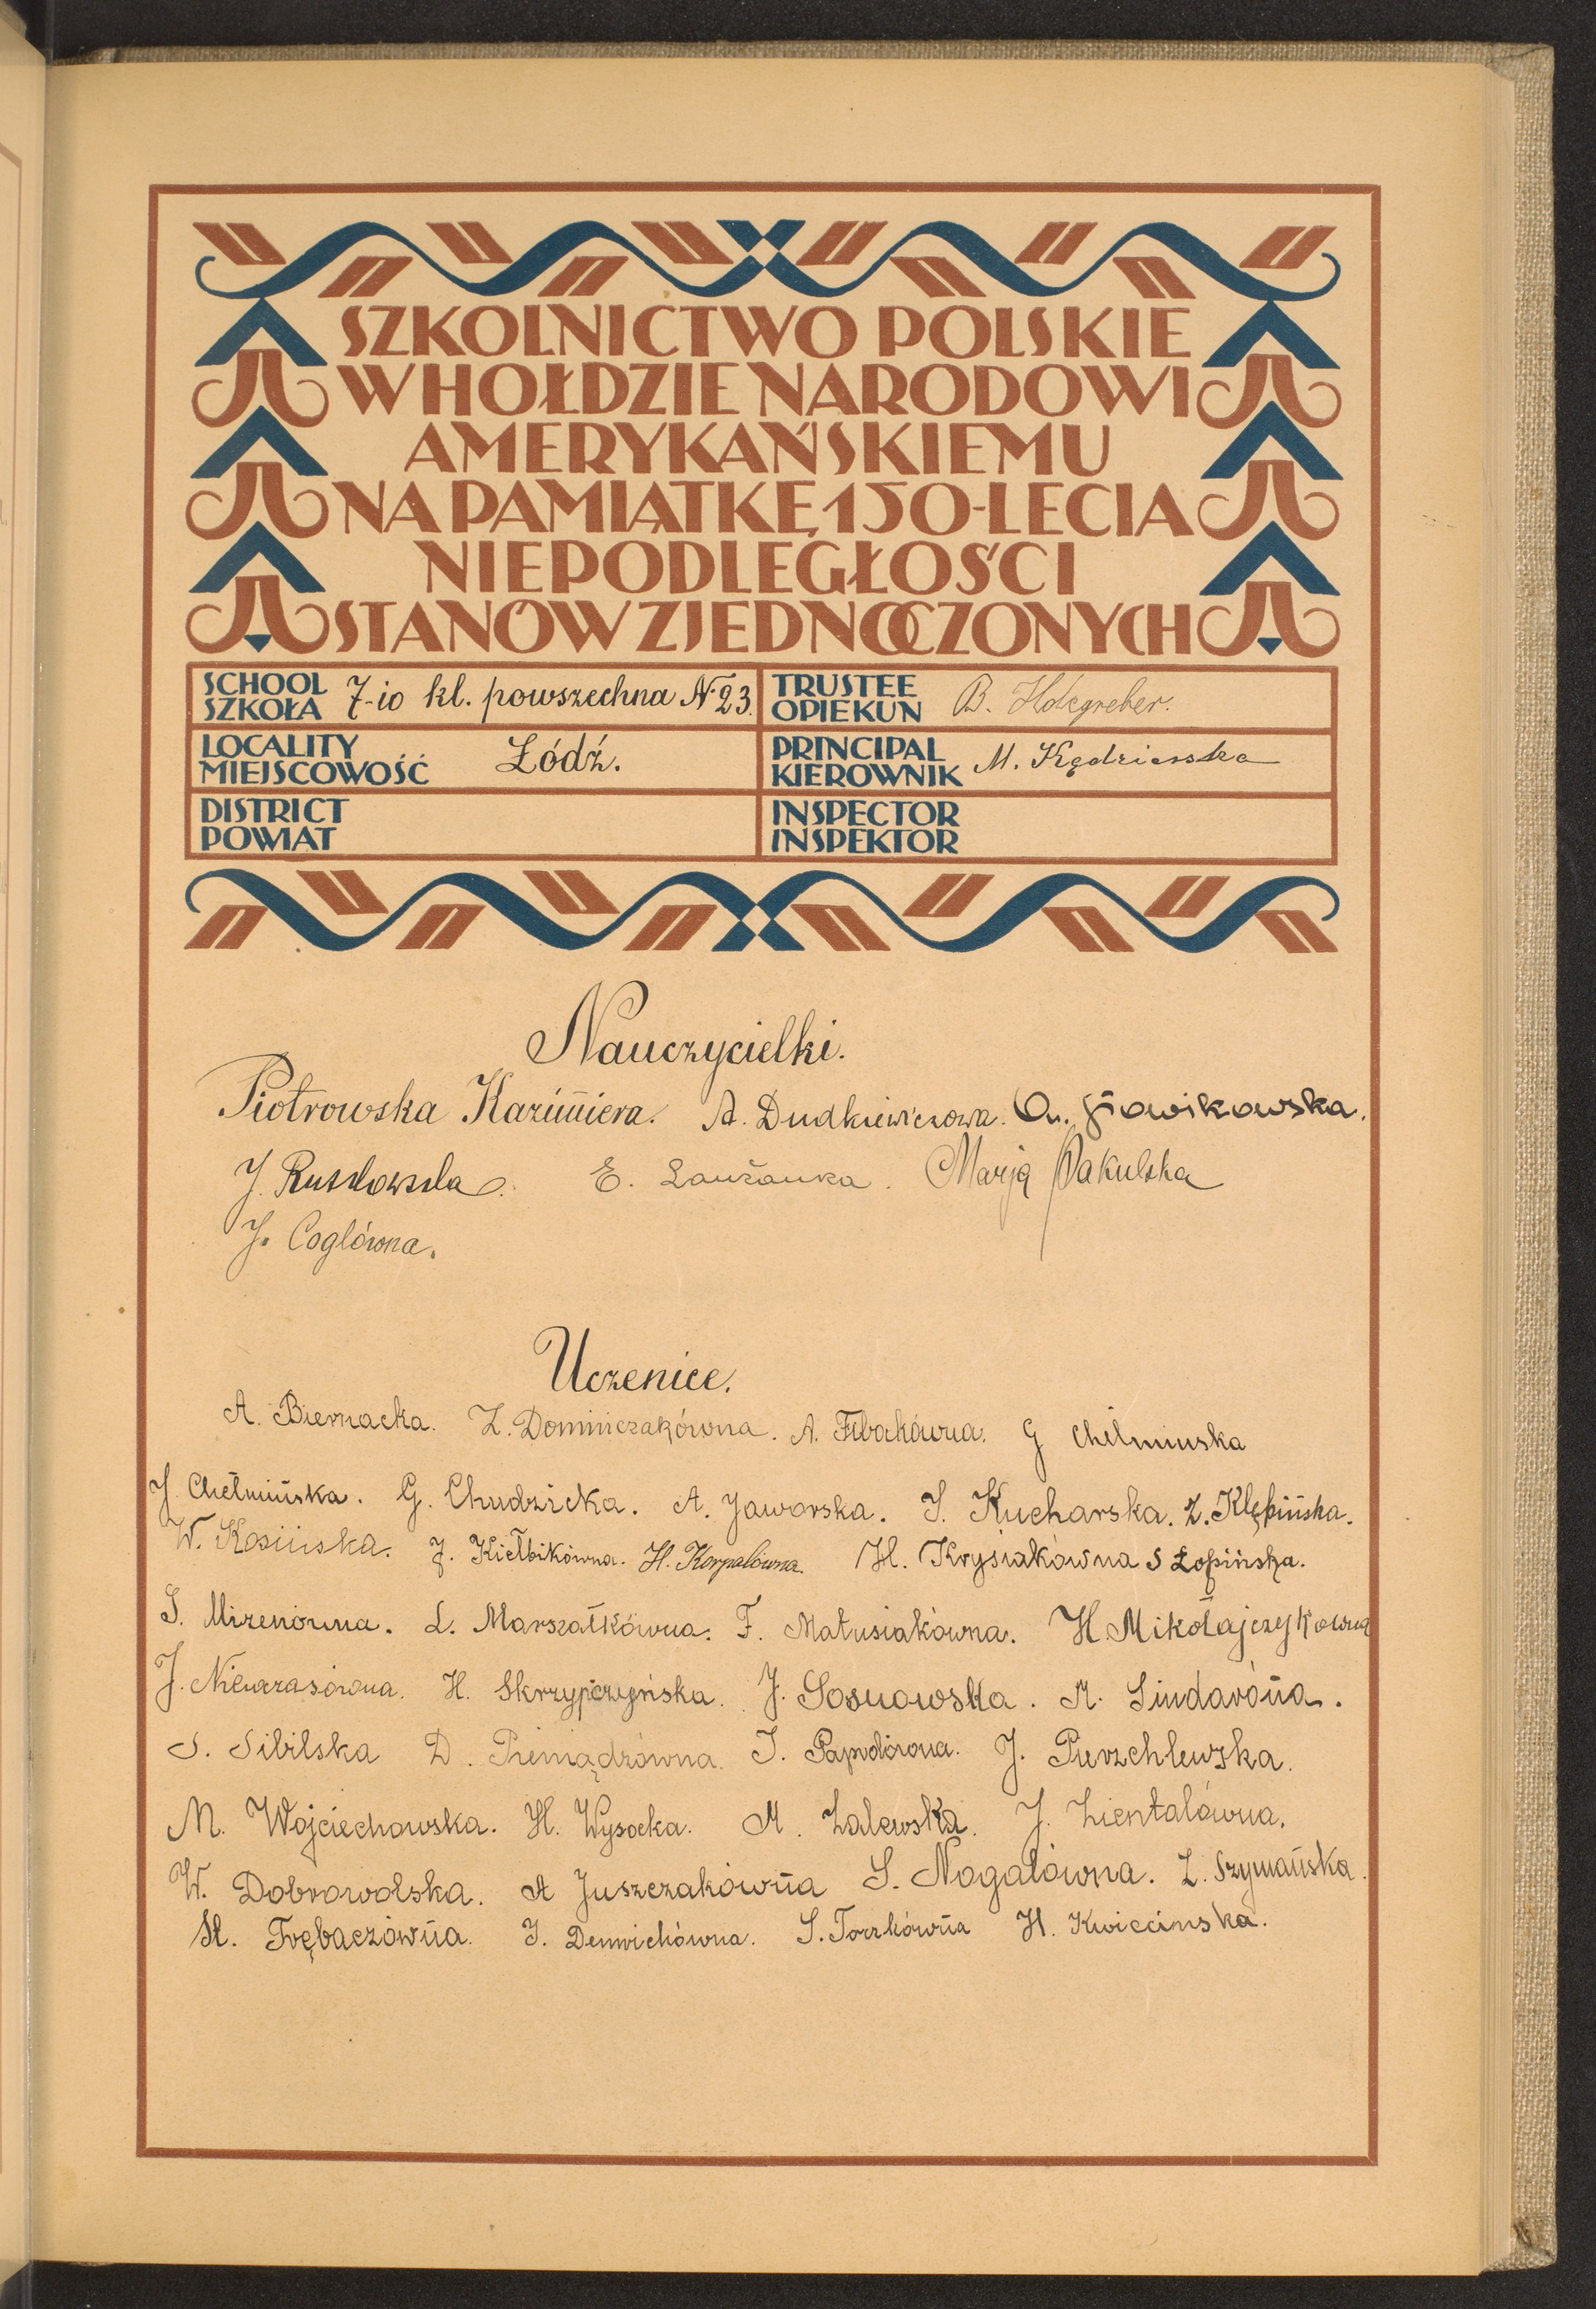 SZKOLNICTWO POLSKIE
W HOŁDZIE NARODOWI
AMERYKAŃSKIEMU
NA PAMIĄTKĘ 150-LECIA
NIEPODLEGŁOŚCI
STANÓW ZJEDNOCZONYCH
SCHOOL
SZKOŁA 7-io kl. powszechna № 23.
TRUSTEE
OPIEKUN B. Holcgreber.
LOCALITY
MIEJSCOWOŚĆ Łódź.
PRINCIPAL
KIEROWNIK M. Kędzierska
DISTRICT
POWIAT
INSPECTOR
INSPEKTOR
Nauczycielki.
Piotrowska Kazimiera. A. Dudkiewiczowa.
J. E. Marja Pakulska
J. Coglówna.
Uczenice.
A. Biernacka. Z. Dominiczakówna. A. G Chełminska
J. Chełmińska. G. Chudzicka. A. Jaworska. I. Kucharska. Z. Klępińska.
W. Kosińska. J. Kiełbikówna. H. Korpalówna. H. Krysiakówna S Łopińska.
S. Mizenówna. L. Marszałkówna. F. Matusiakówna. H. Mikołajczykówna
J. H. Skrzypczyńska. J. Sosnowska. M. Sindaróŵna.
S. Sibilska D. Pieniądzówna. I. J. Pierzchlewska.
M. Wojciechowska. H. Wysocka. M. Zalewska. J. Zientalówna.
W. Dobrowolska. A Juszczakówna S. Nogalówna. Z. Szymańska.
St. Trębaczówna. J. S. Torzkówna H. Kwiecinska.